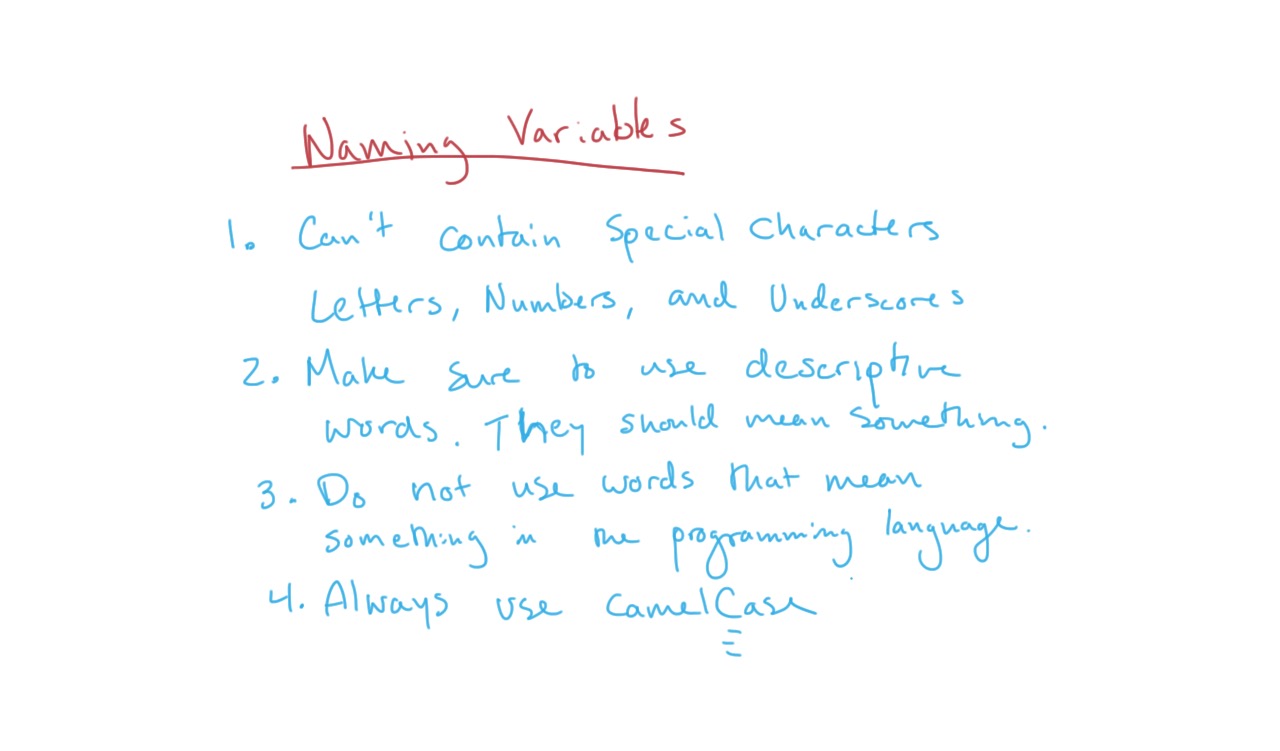 Naming Variables
1. Can't contain Special Characters
Letters, Numbers, and Underscores
2. Make sure to use descriptive
words. They should mean something.
3. Do not use words that mean
something in the programming language.
4. Always use camelCase